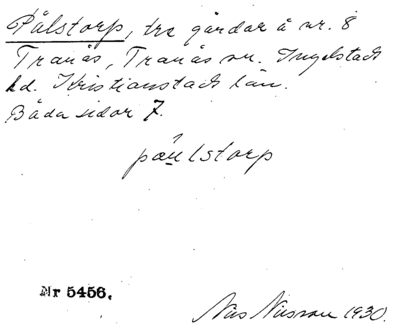 Pålstorp, tre gårdar å nr. 8
Tranås, Tranås sn. Ingelstads
hd. Kristianstads län.
Båda sidor 7.
påulstorp
Nr 5456.
Nils Nilsson 1930.